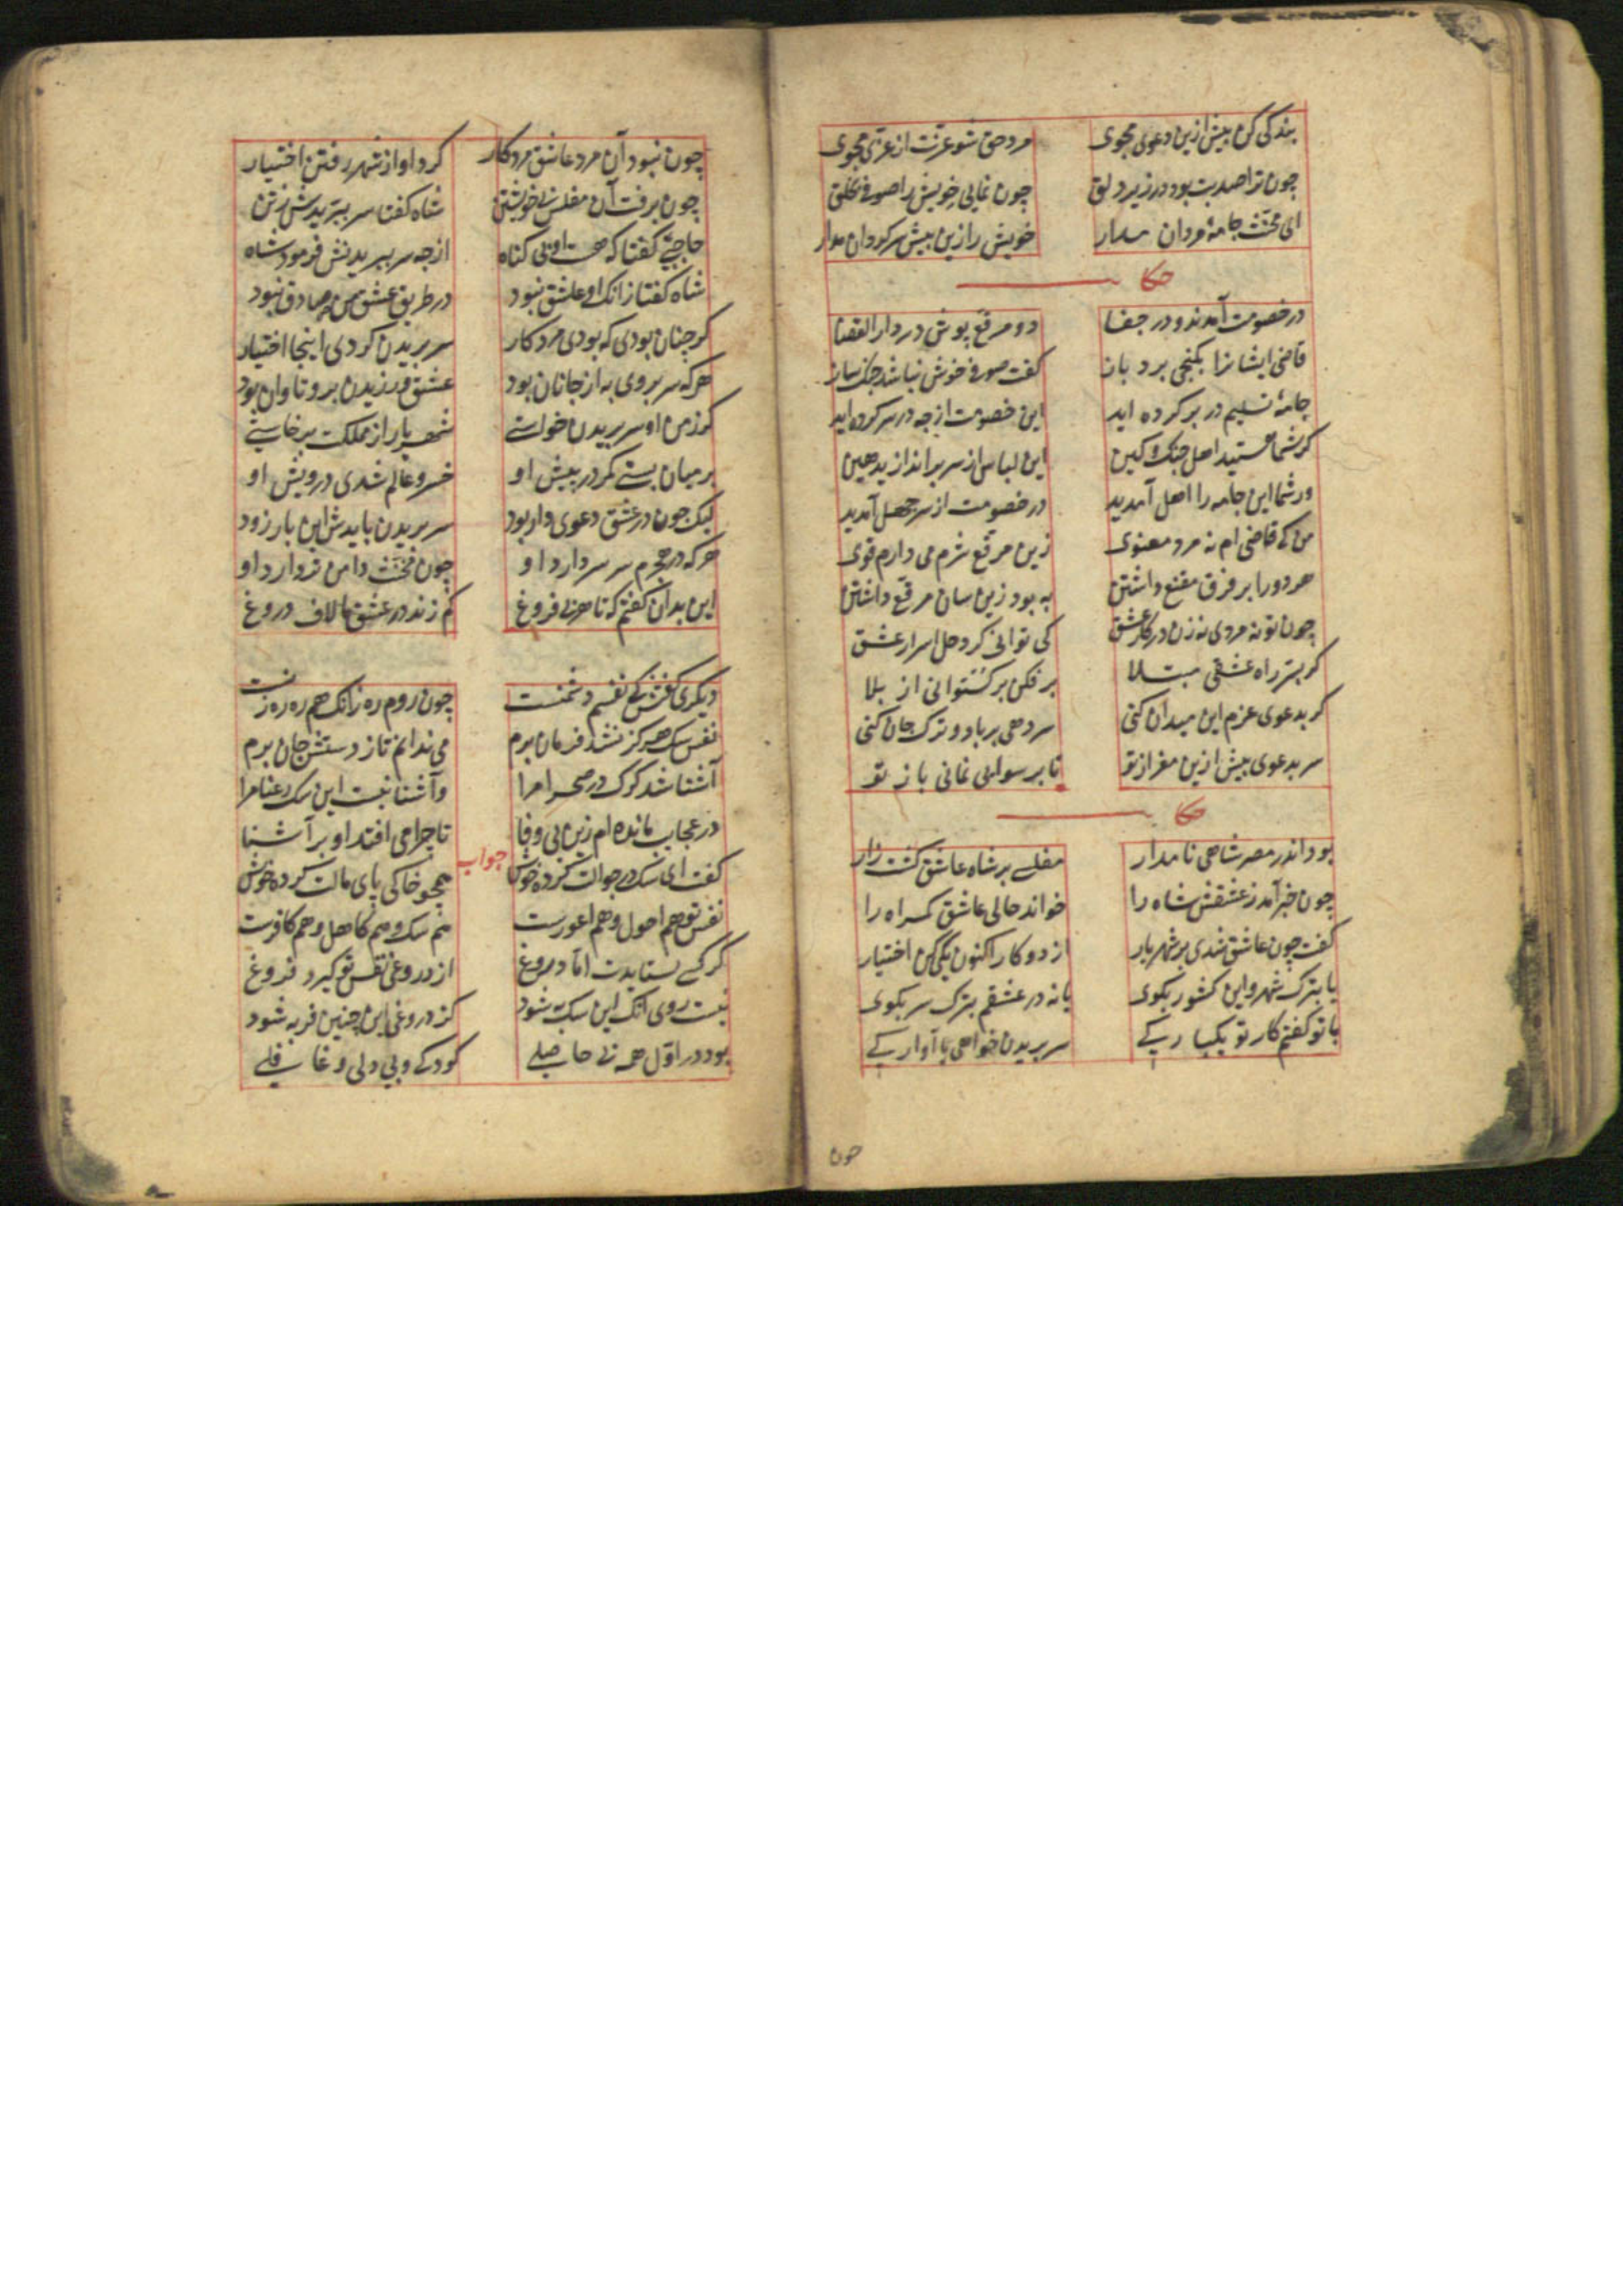 بندکی کن بیش ازین دعوی مجوی	مرد حق شو عزت از عزی مجوی
چون ترا صد بت بود در زیر دلق	چون نمایی خویش را صوفی بخلق
ای مخنث جامهٔ مردان مدار	خویش را زین بیش سرکردان مدار
حکا
در خصومت آمدند و در جفا	دو مرقع پوش در دار القضا
قاضی ایشانرا بکنجی برد باز	کفت صوفی خوش نباشد جنک ساز
جامهٔ تسلیم در بر کرده اید	این خصومت از چه در سر کرده اید
کر شما هستید اهل جنک و کین	این لباس از سر براندازید هین
ور شما این جامه را اهل آمدید	در خصومت از سر جهل آمدید
من که قاضی ام نه مرد معنوی	زین مرقع شرم می دارم قوی
هر دو را بر فرق مقنع داشتن	به بود زین سان مرقع داشتن
چون تو نه مردی نه زن در کار عشق	کی توانی کرد حل اسرار عشق
کر بسر راه عشقی مبتلا	برفکن برکستوانی از بلا
کر بدعوی عزم این میدان کنی	سر دهی بر باد و ترک جان کنی
سر بدعوی بیش ازین مفراز تو	تا برسوایی نمانی باز تو
حکا
بود اندر مصر شاهی نامدار	مفلسی بر شاه عاشق کشت زار
چون خبر آمد ز عشقش شاه را	خواند حالی عاشق کمراه را
کفت چون عاشق شدی بر شهریار	از دو کار اکنون یکی کن اختیار
یا بترک شهر و این کشور بکوی	یا نه در عشقم بترک سر بکوی
با تو کفتم کار تو یکبارکی	سر بریدن خواهی یا آوارکی
چون
چون نبود آن مرد عاشق مرد کار	کرد او از شهر رفتن اختیار
چون برفت آن مفلس بی خویشتن	شاه کفتا سر ببریدش ز تن
حاجبی کفتا که هست او بی کناه	از چه سر ببریدنش فرمود شاه
شاه کفتا زانک او عاشق نبود	در طریق عشق من صادق نبود
کر چنان بودی که بودی مرد کار	سر بریدن کردی اینجا اختیار
هر که سر بر وی به از جانان بود	عشق ورزیدن برو تاوان بود
کر ز من او سر بریدن خواستی	شهریار از مملکت برخاستی
بر میان بستی کمر در پیش او	خسرو عالم شدی درویش او
لیک چون در عشق دعوی دار بود	سر بریدن بایدش این بار زود
هر که در هجرم سر سر دارد او	چون مخنث دامن تر دارد او
این بدان کفتم که تا هر بی فروغ	کم زند در عشق ما لاف دروغ
دیکری کفتش که نفسم دشمنست	چون روم ره زانک هم ره ره زنست
نفس سک هرکز نشد فرمان برم	می ندانم تا ز دستش جان برم
آشنا شد کرک در صحرا مرا	و آشنا نیست این سک رعنا مرا
در عجایب مانده ام زین بی وفا	تا چرا می افتد او بر آشنا
جواب
کفت ای سک در جوالت کرده خوش	همچو خاکی پای مالت کرده خوش
نفس تو هم احول و هم اعورست	هم سک و هم کاهل و هم کافرست
کر کسی بستایدت اما دروغ	از دروغی نفس تو کیرد فروغ
نیست روی آنک این سک به شود	کز دروغی این چنین فربه شود
بود در اول همه بی حاصلی	کودکی و بی دلی و غافلی